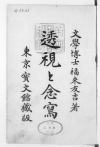 文學博士福来友吉著
透視と念寫
東京寶文館藏版